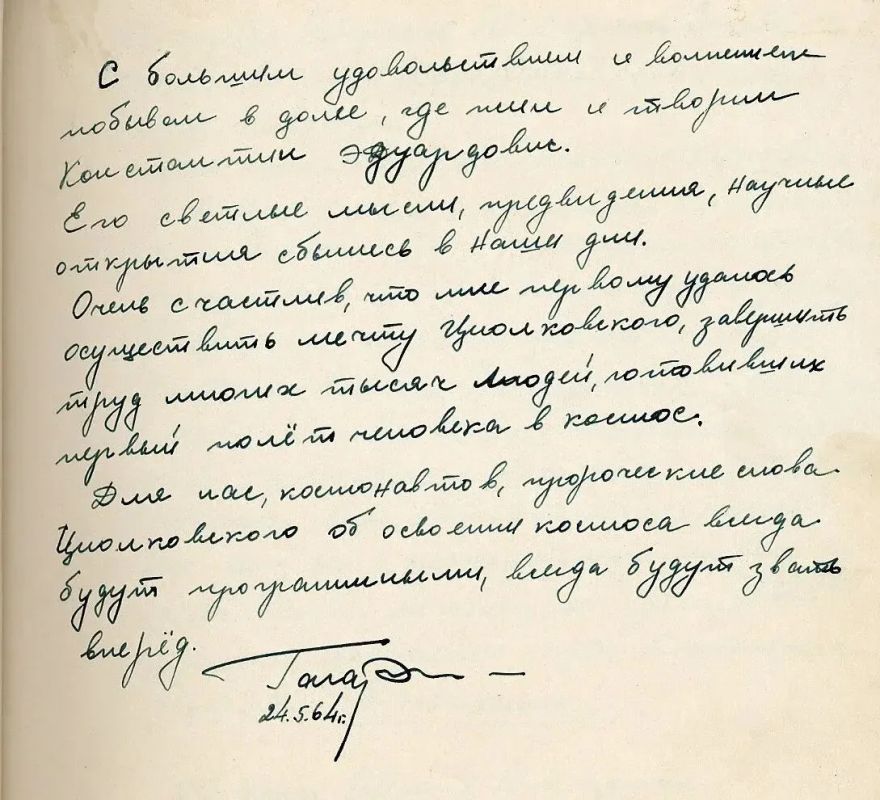 С большим удовольствием и волнением
побывал в доме, где жил и творил
Константин Эдуардович.
Его светлые мысли, предвидения, научные
открытия сбылись в наши дни.
Очень счастлив, что мне первому удалось
осуществить мечту Циолковского, завершить
труд многих тысяч людей, готовивших
первый полёт человека в космос.
Для нас, космонавтов, пророческие слова
Циолковского об освоении космоса всегда
будут программными, всегда будут звать
вперёд.
Гагарин
24.5.64г.